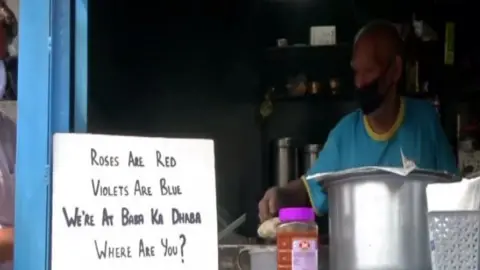 Roses Are Red
Violets Are Blue
We're At Baba Ka Dhaba
Where Are You?